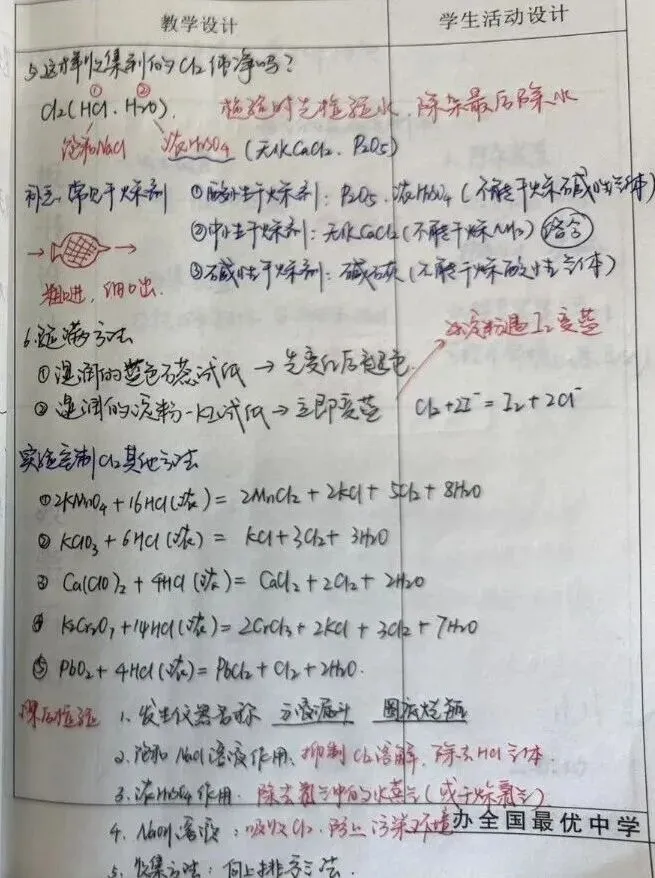 教学设计 学生活动设计
5.这样收集到的Cl₂纯净吗?
① ②
Cl₂(HCl、H₂O) 检验时先检验水,除杂最后除水
饱和NaCl 浓H₂SO₄(无水CaCl₂、P₂O₅)
补充:常见干燥剂 ①酸性干燥剂:P₂O₅、浓H₂SO₄(不能干燥碱性气体)
②中性干燥剂:无水CaCl₂(不能干燥NH₃)络合
③碱性干燥剂:碱石灰(不能干燥酸性气体)
粗口进,细口出.
6.验满方法 淀粉遇I₂变蓝
①湿润的蓝色石蕊试纸→先变红后褪色.
②湿润的淀粉-KI试纸→立即变蓝 Cl₂+2I⁻=I₂+2Cl⁻
实验室制Cl₂其他方法
①2KMnO₄+16HCl(浓)=2MnCl₂+2KCl+5Cl₂+8H₂O
②KClO₃+6HCl(浓)=KCl+3Cl₂+3H₂O
③Ca(ClO)₂+4HCl(浓)=CaCl₂+2Cl₂+2H₂O
④K₂Cr₂O₇+14HCl(浓)=2CrCl₃+2KCl+3Cl₂+7H₂O
⑤PbO₂+4HCl(浓)=PbCl₂+Cl₂+2H₂O.
课后检验 1.发生仪器名称 分液漏斗 圆底烧瓶
2.饱和NaCl溶液作用:抑制Cl₂溶解,除去HCl气体
3.浓H₂SO₄作用:除去氯气中的水蒸气(或干燥氯气)
4.NaOH溶液:吸收Cl₂,防止污染环境
办全国最优中学
5.收集方法:向上排空气法.